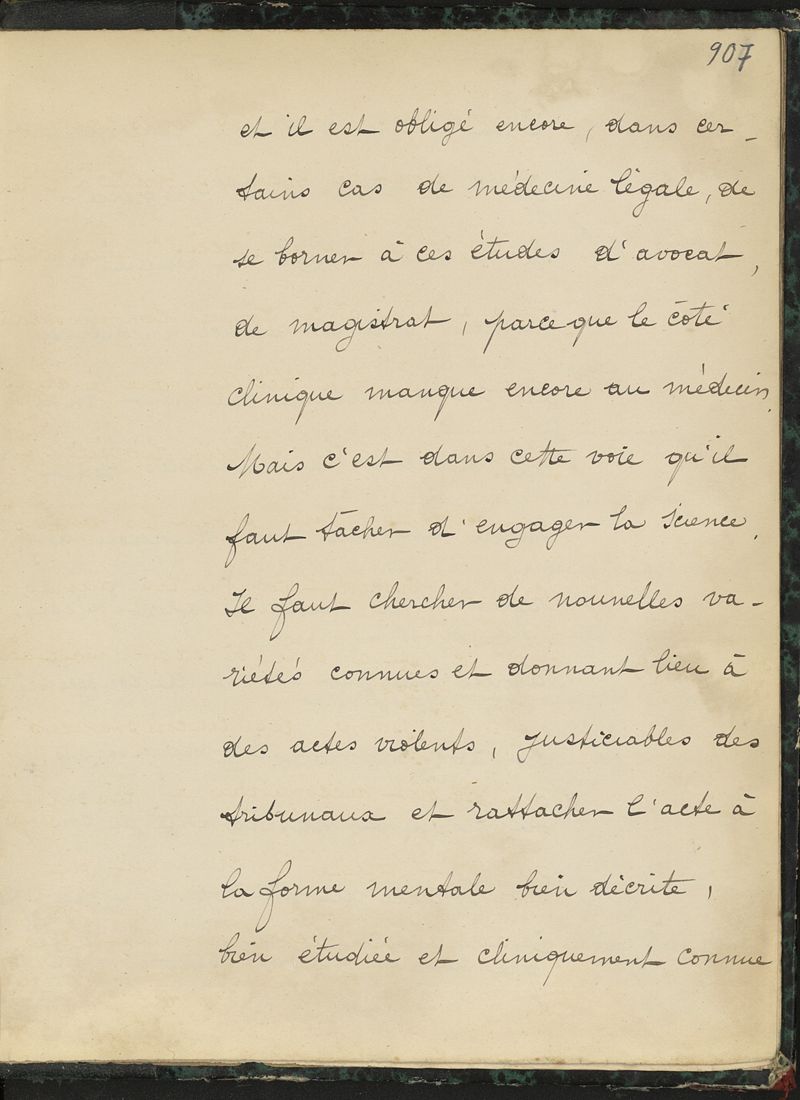 907
et il est obligé encore, dans cer-
tains cas de médecine légale, de
se borner à ces études d'avocat,
de magistrat, parceque le côté
clinique manque encore au médecin.
Mais c'est dans cette voie qu'il
faut tâcher d'engager la science.
Il faut chercher de nouvelles va-
riétés connues et donnant lieu à
des actes violents, justiciables des
tribunaux et rattacher l'acte à
la forme mentale bien décrite,
bien étudiée et cliniquement connue